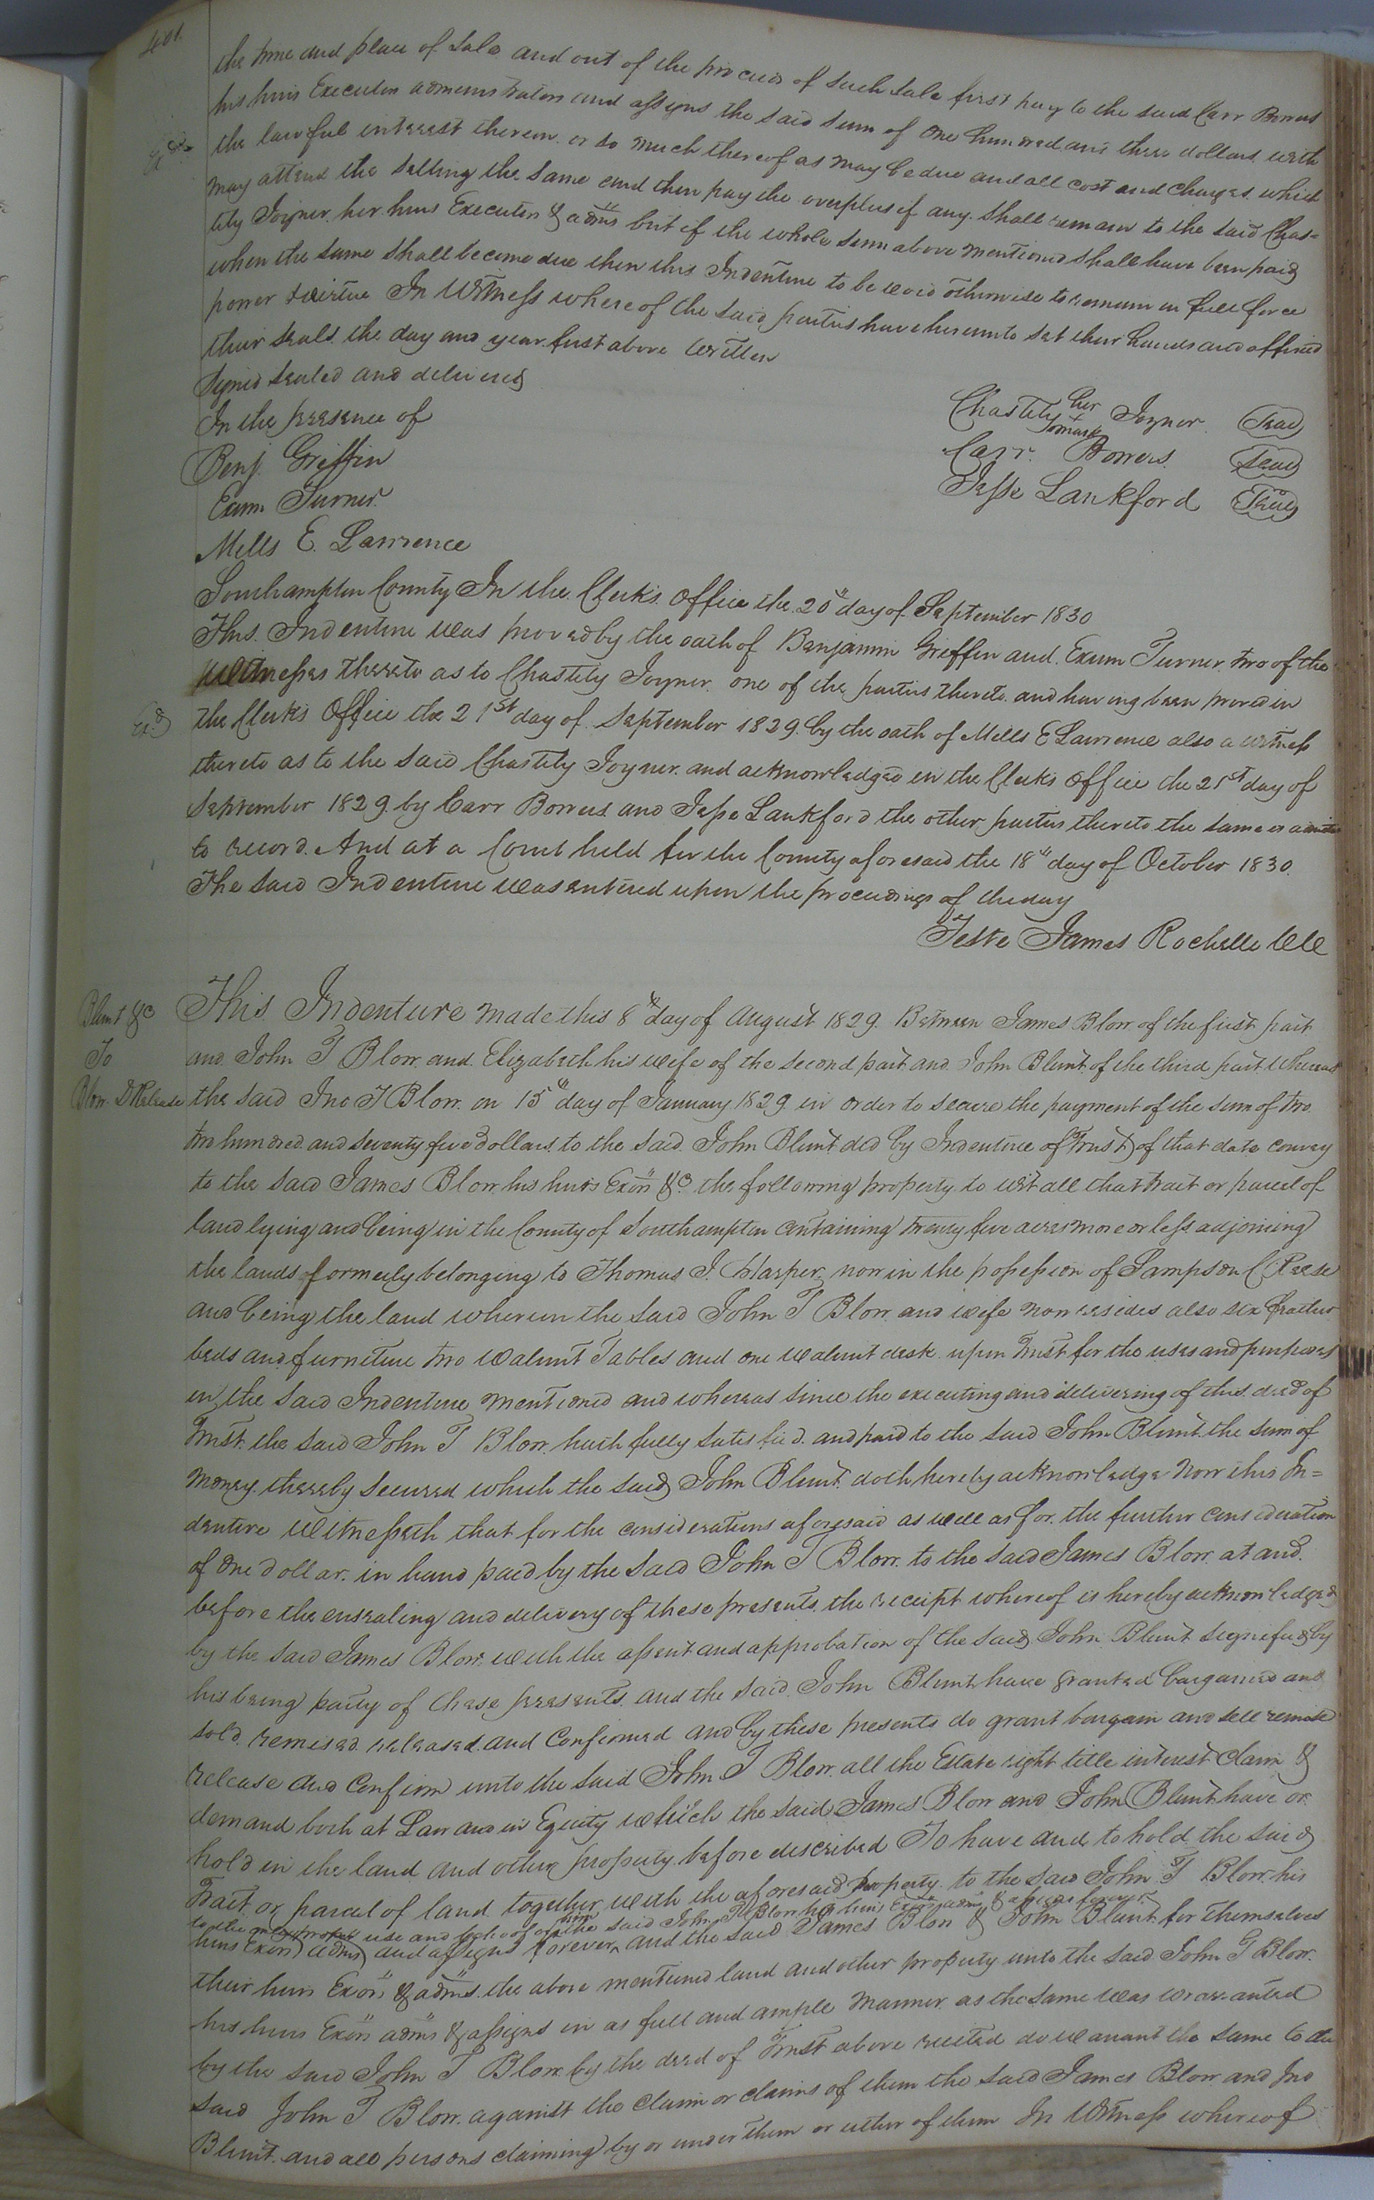 401.
the time and place of Sale and out of the proceeds of such Sale first pay to the said Carr Bowers
his heirs Executors administrators and assigns the said sum of one hundred and three dollars with
the lawful interest thereon or so much thereof as may be due and all cost and charges which
may attend the selling the same and then pay the overplus if any shall remain to the said Chas=
tity Joyner her heirs Executors & adms but if the whole sum above mentioned shall have been paid
when the same shall become due then this Indenture to be void otherwise to remain in full force
power & virtue In Witness whereof the said parties have hereunto set their hands and affixed
their seals the day and year first above written
Signed sealed and delivered
In the presence of
Benj. Griffin
Exum Turner
Mills E. Lawrence
Chastity her mark Joyner Seal
Carr Bowers Seal
Jesse Lankford Seal
Southampton County In the Clerk's office the 20th day of September 1830
This Indenture was proved by the oath of Benjamin Griffin and Exum Turner two of the
Witnesses thereto as to Chastity Joyner one of the parties thereto and having been proved in
Exd The Clerk's Office the 21st day of September 1829 by the oath of Mills E Lawrence also a witness
thereto as to the said Chastity Joyner and acknowledged in the Clerks office the 21st day of
September 1829 by Carr Bowers and Jesse Lankford the other parties thereto the same is
to record. And at a Court held for the County aforesaid the 18th day of October 1830
The said Indenture was entered upon the proceedings of the day
Teste James Rochelle
Blunt &c
To
Blow D Release
This Indenture made this 8th day of August 1829 Between James Blow of the first part
and John T Blow and Elizabeth his wife of the second part and John Blunt of the third part Whereas
the said Jno T Blow on 15th day of January 1829 in order to secure the payment of the sum of two
two hundred and seventy five dollars to the said John Blunt did by Indenture of Trust of that date convey
to the said James Blow his heirs Exors &c the following property to wit all that tract or parcel of
land lying and being in the County of Southampton containing twenty five acres more or less adjoining
the lands formerly belonging to Thomas J. Harper now in the possession of Sampson C Reese
and being the land whereon the said John T Blow and wife now resides also six feather
beds and furniture two walnut Tables and one walnut desk upon Trust for the uses and purposes
in the said Indenture mentioned and whereas since the executing and delivering of this deed of
Trust the said John T Blow hath fully satisfied and paid to the said John Blunt the sum of
money thereby secured which the said John Blunt doth hereby acknowledge Now this In=
denture Witnesseth that for the considerations aforesaid as well as for the further consideration
of one dollar in hand paid by the said John T Blow to the said James Blow at and
before the ensealing and delivery of these presents the receipt whereof is hereby acknowledged
by the said James Blow with the assent and approbation of the said John Blunt signified by
his being party of these presents and the said John Blunt have granted bargained and
sold remised released and confirmed and by these presents do grant bargain and sell remise
release and confirm unto the said John T Blow all the Estate right title interest claim &
demand both at Law and in Equity which the said James Blow and John Blunt have or
hold in the land and other property before described To have and to hold the said
Tract or parcel of land together with the aforesaid property to the said John T Blow his
to the only proper use and behoof of him the said John T Blow his heirs Exors adms & assigns forever
heirs Exors adms and assigns forever and the said James Blow & John Blunt for themselves
their heirs Exors & adms the above mentioned land and other property unto the said John T Blow
his heirs Exors adms & assigns in as full and ample manner as the same was warranted
by the said John T Blow by the deed of Trust above recited do warrant the same to the
said John T Blow against the claim or claims of them the said James Blow and Jno
Blunt and all persons claiming by or under them or either of them In Witness whereof